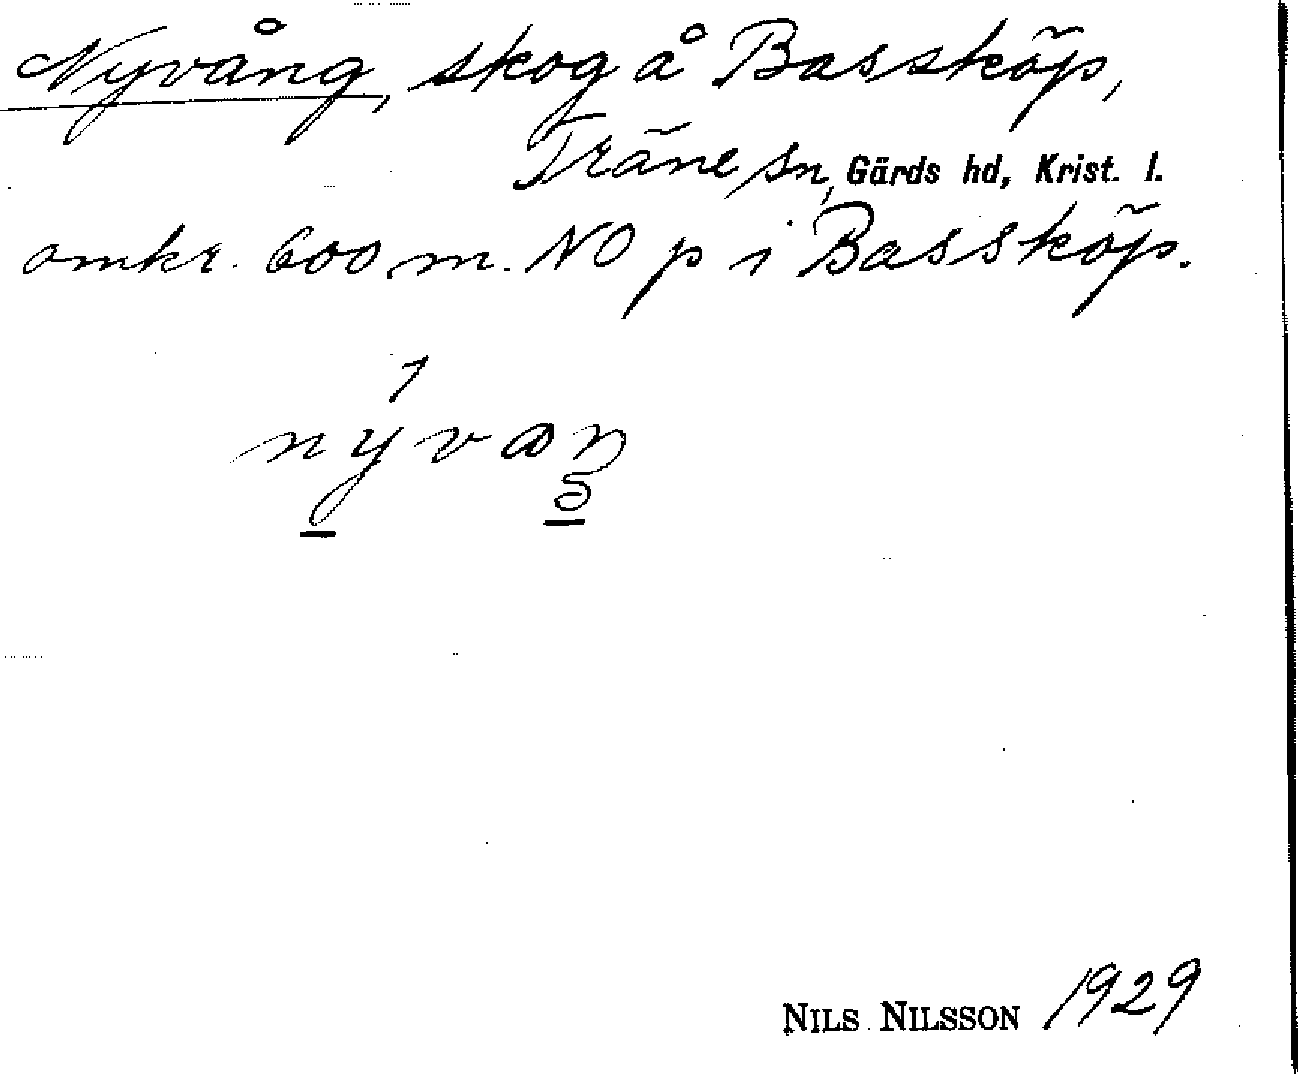 Nyvång, skog å Bassköp,
Träne sn, Gärds hd, Krist. l.
omkr. 600 m. NO p i Bassköp.
NILS NILSSON 1929